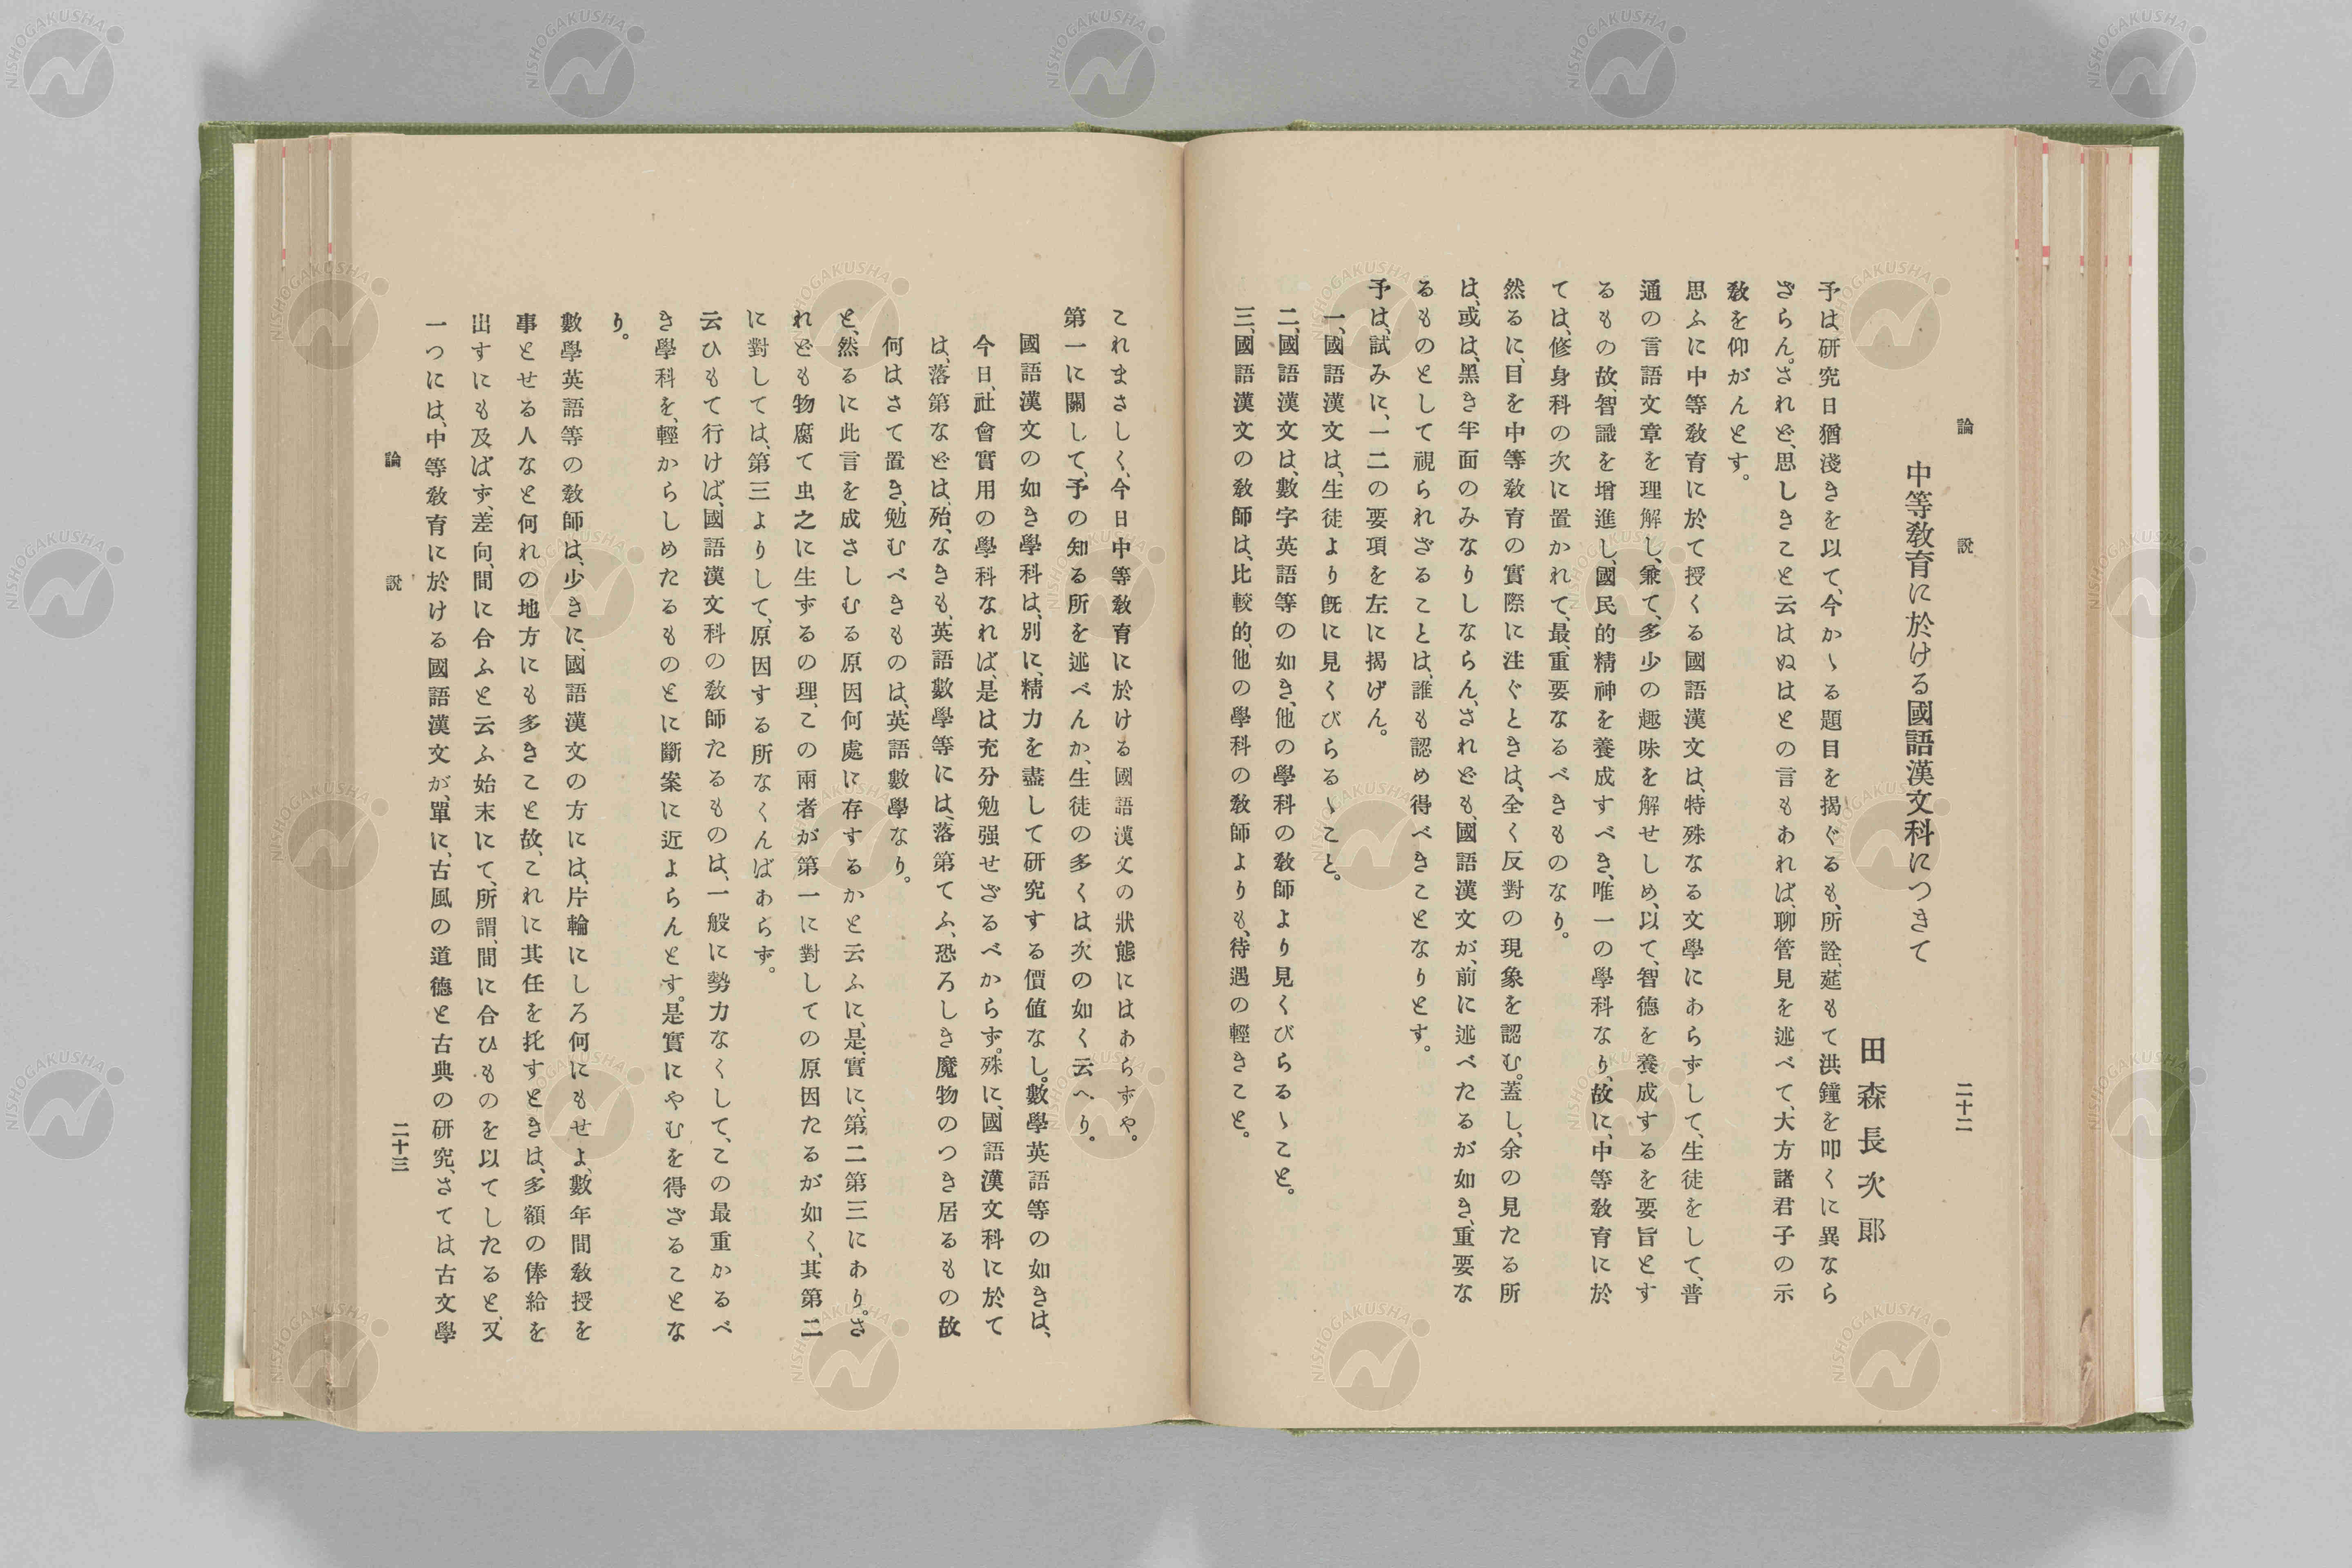 論説
二十二
中等教育に於ける國語漢文科につきて
田森長次郎
予は、研究日猶淺きを以て、今かゝる題目を揭ぐるも、所詮、莛もて洪鐘を叩くに異なら
ざらん。されど、思しきこと云はぬはとの言もあれば、聊管見を述べて、大方諸君子の示
敎を仰がんとす。
思ふに中等敎育に於て授くる國語漢文は、特殊なる文學にあらずして、生徒をして、普
通の言語文章を理解し、兼て、多少の趣味を解せしめ、以て、智德を養成するを要旨とす
るもの故、智識を增進し、國民的精神を養成すべき、唯一の學科なり、故に、中等敎育に於
ては、修身科の次に置かれて、最、重要なるべきものなり。
然るに、目を中等敎育の實際に注ぐときは、全く反對の現象を認む。蓋し、余の見たる所
は、或は、黑き半面のみなりしならん、されども、國語漢文が、前に述べたるが如き、重要な
るものとして視られざることは、誰も認め得べきことなりとす。
予は、試みに、一二の要項を左に揭げん。
一、國語漢文は、生徒より旣に見くびらるゝこと。
二、國語漢文は、數字英語等の如き、他の學科の敎師より見くびらるゝこと。
三、國語漢文の敎師は、比較的、他の學科の敎師よりも、待遇の輕きこと。
これまさしく、今日中等敎育に於ける國語漢文の狀態にはあらずや。
第一に關して、予の知る所を述べんか、生徒の多くは次の如く云へり。
國語漢文の如き學科は、別に、精力を盡して硏究する價値なし。數學英語等の如きは、
今日、社會實用の學科なれば、是は充分勉强せざるべからず。殊に、國語漢文科に於て
は、落第などは、殆、なきも、英語數學等には、落第てふ、恐ろしき魔物のつき居るもの故
何はさて置き、勉むべきものは、英語數學なり。
と、然るに此言を成さしむる原因何處に存するかと云ふに、是、實に、第二第三にあり。さ
れども物腐て虫之に生ずるの理、この兩者が第一に對しての原因たるが如く、其第二
に對しては、第三よりして、原因する所なくんばあらず。
云ひもて行けば、國語漢文科の敎師たるものは、一般に勢力なくして、この最重かるべ
き學科を、輕からしめたるものとに斷案に近よらんとす。是實にやむを得ざることな
り。
數學英語等の敎師は、少きに、國語漢文の方には、片輪にしろ何にもせよ、數年間敎授を
事とせる人など何れの地方にも多きこと故、これに其任を托すときは、多額の俸給を
出すにも及ばず、差向、間に合ふと云ふ始末にて、所謂、間に合ひものを以てしたると、又
一つには、中等敎育に於ける國語漢文が、單に、古風の道德と古典の硏究、さては古文學
論說
二十三